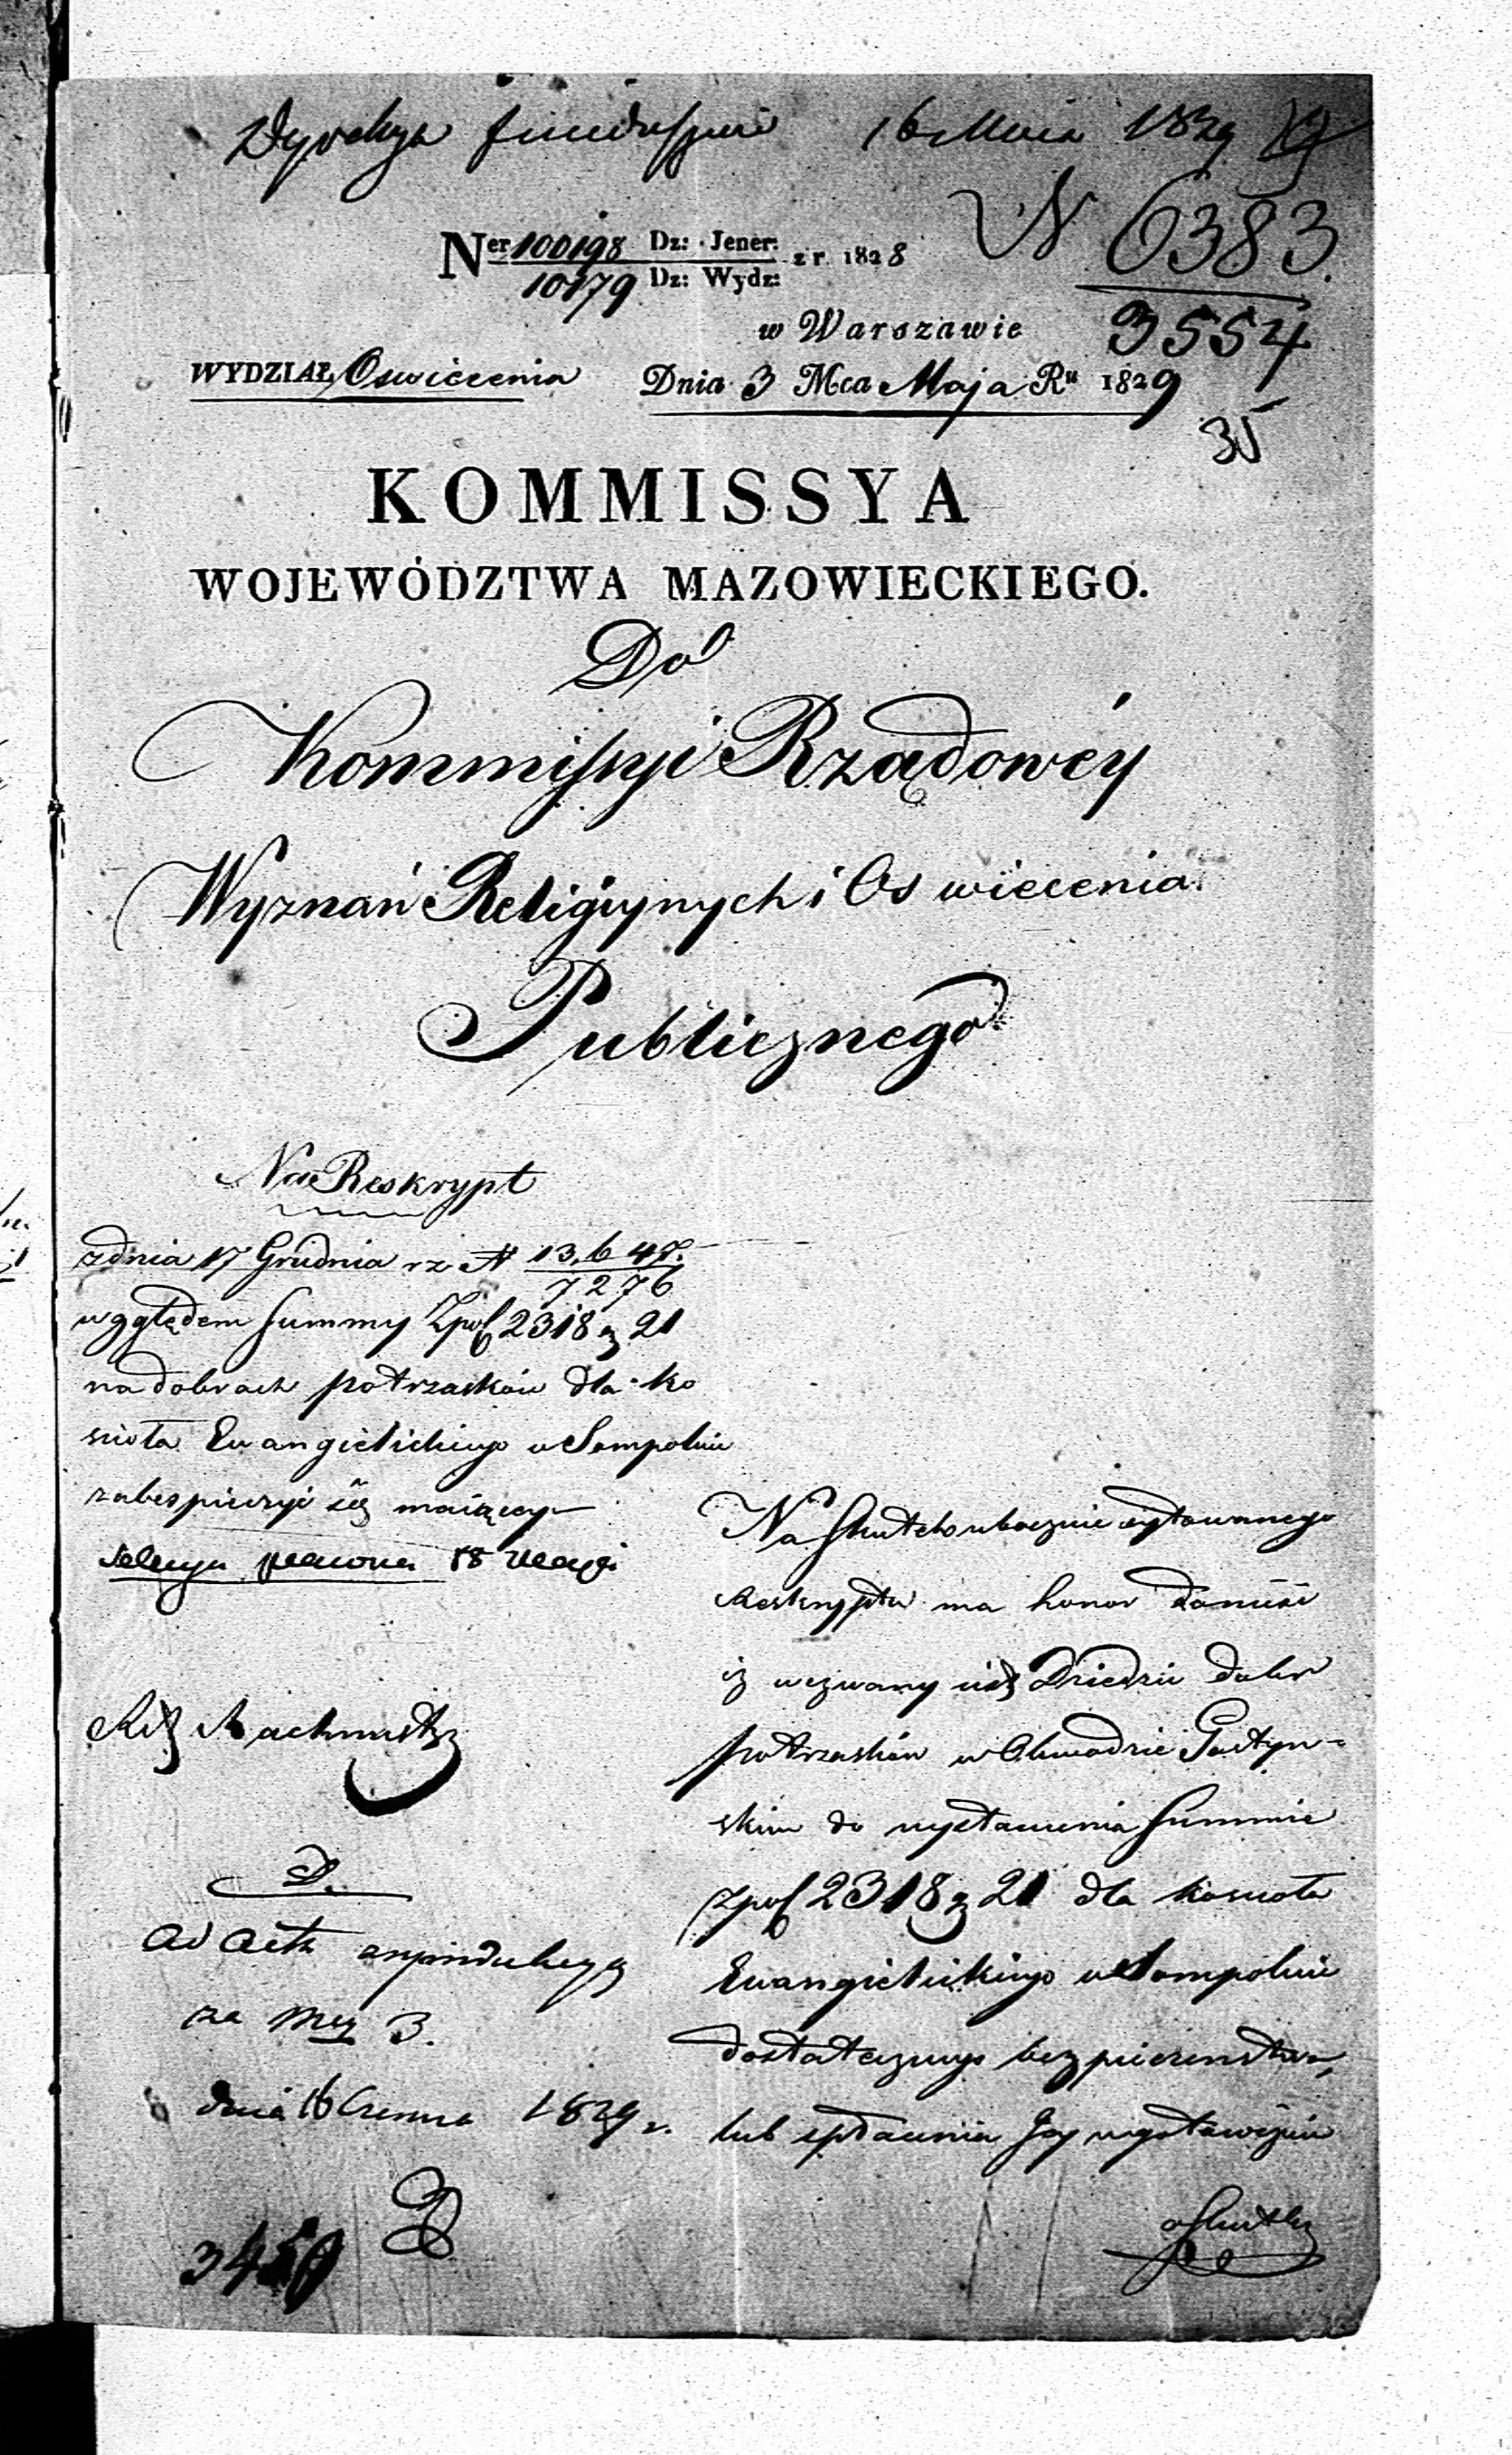 Dyrekcya funduszów 16 Maia 1829
N 6383.
3554
Ner 100198 Dz: Jener: z r. 1828
10179 Dz: Wydz:
w Warszawie
WYDZIAŁ Oswiecenia Dnia 3 Mca Maja Ru 1829
35
KOMMISSYA
WOJEWÓDZTWA MAZOWIECKIEGO.
Do
Kommissyi Rządowéy
Wyznań Religiynych i Oswiecenia
Publicznego
Na Reskrypt
z dnia 17 Grudnia rz N 13,647.
7276
względem Summy Zpol 2318 g 21
na dobrach Potrzasków dla ko
scioła Ewangielickiego w Sompolnie
zabespieczyć się maiącey
18 Maja
Na Skutek ubocznie cytowanego
Reskryptu ma honor donieść
iż wezwany iest Dziedzic dobr
Potrzasków w Obwodzie Gostyn-
skim do wystawienia Summie
Zpol 2318 g 21 dla koscioła
Ewangielickiego w Sompolnie
dostatecznego bezpieczenstwa,
lub spłacenia Jey
D.
ad acta
za 3.
dnia 16 Czerwca 1829 r.